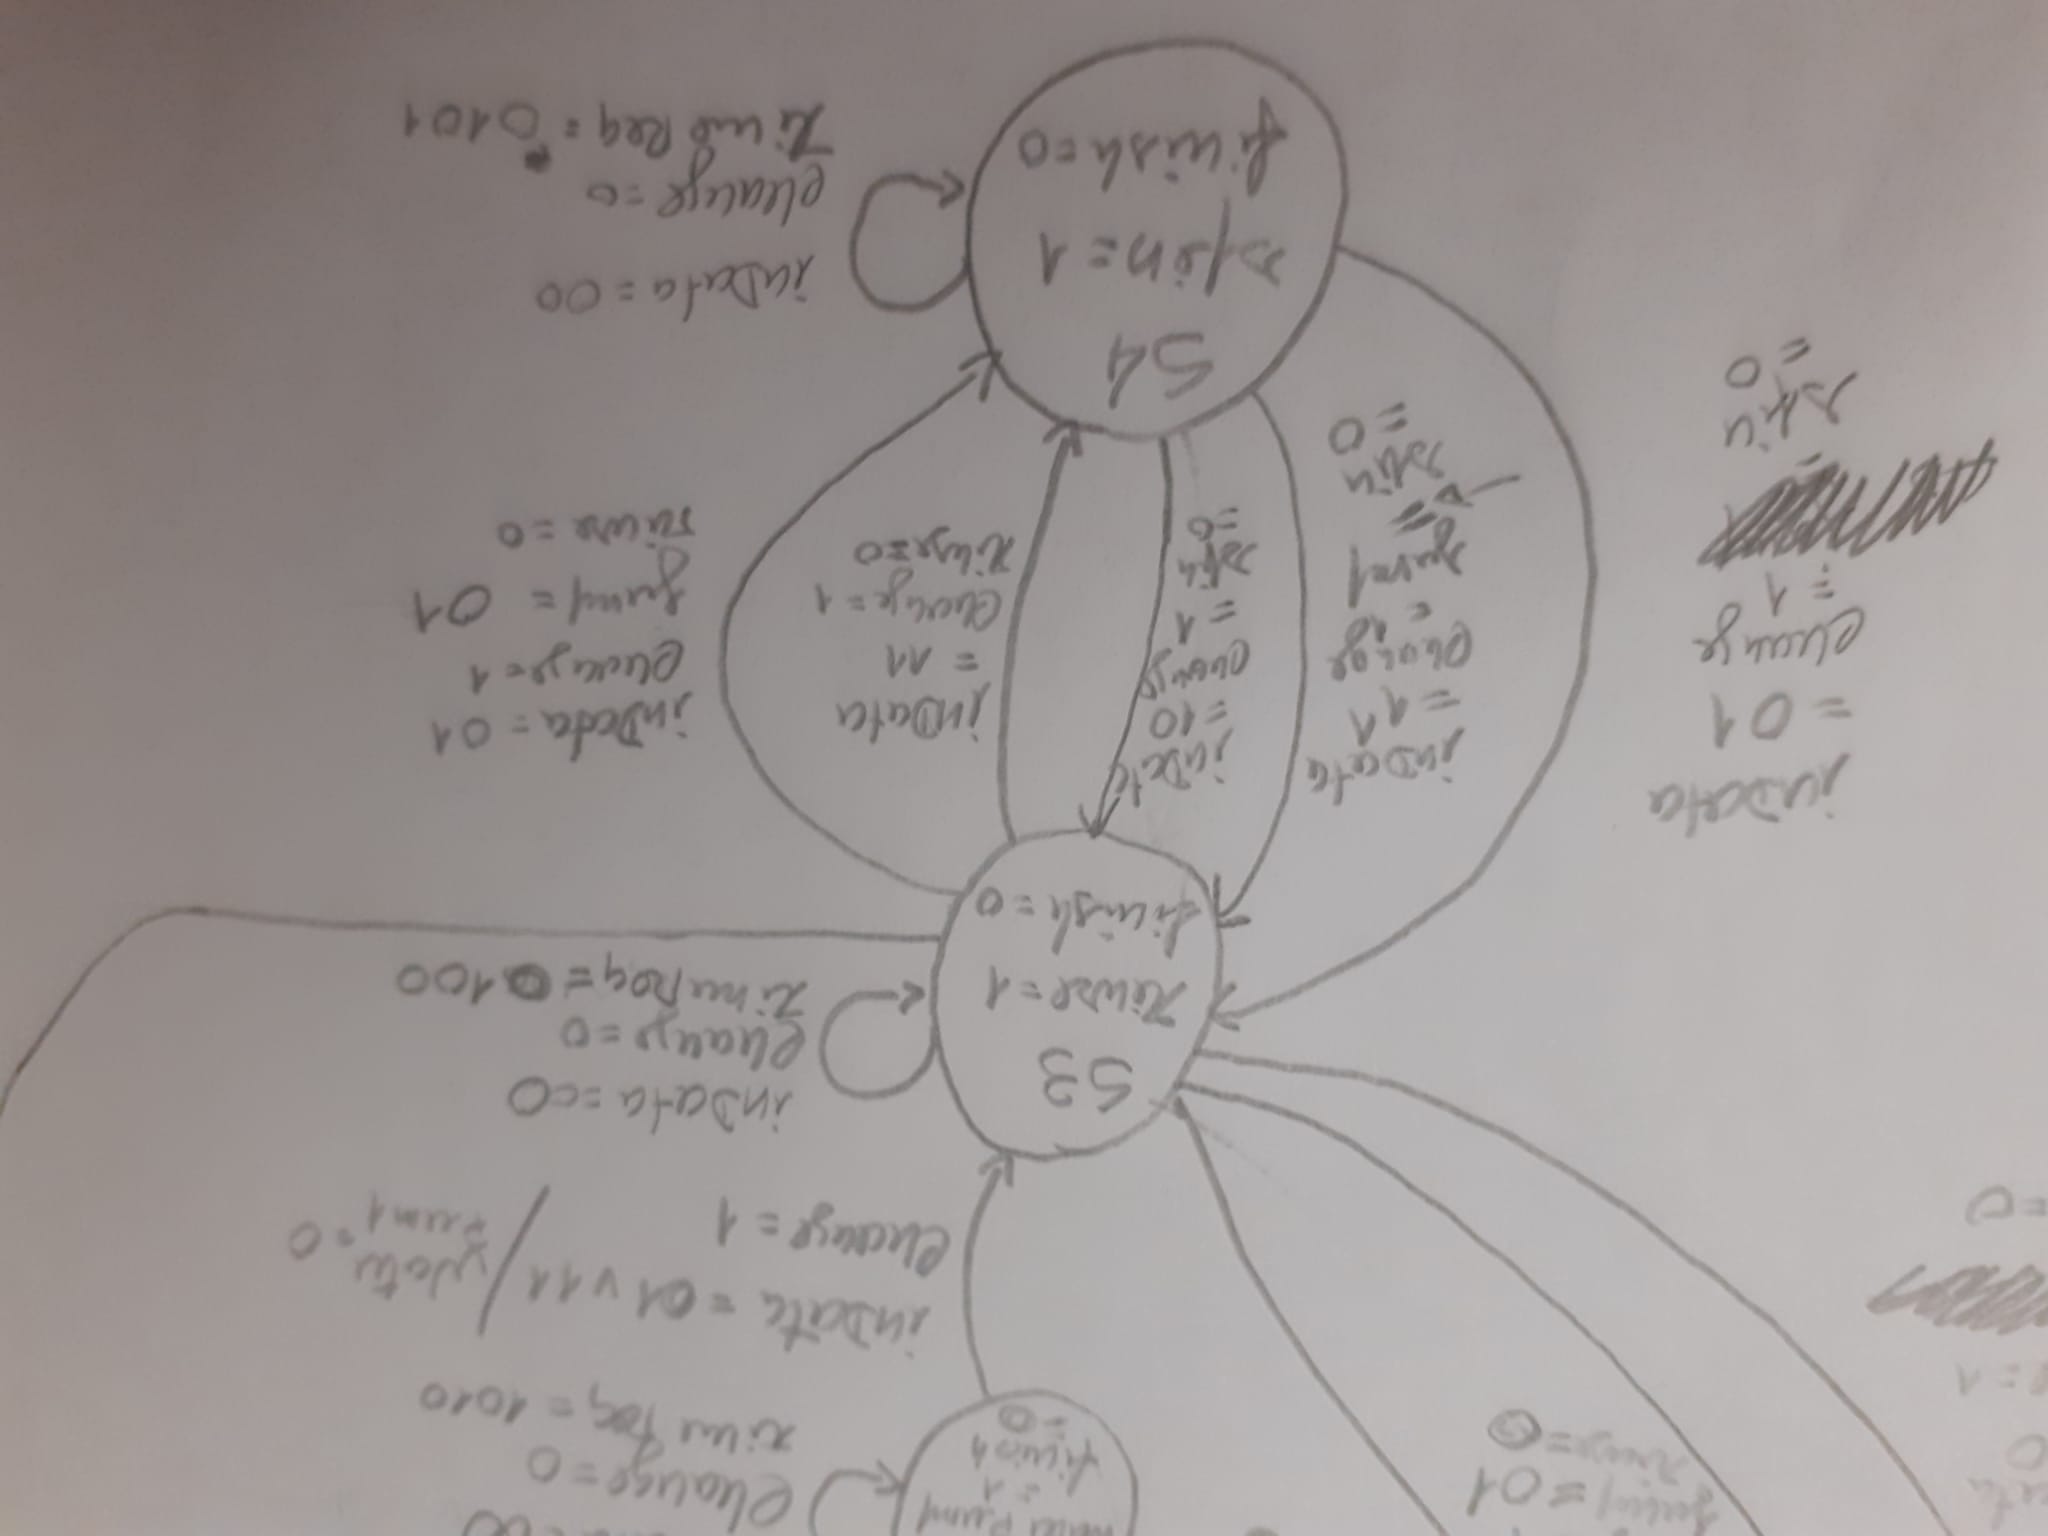 = 01
= 0
finish
= 1
= 0
Change = 0
Time Req = 1010
= 1
= 0
inData = 01 v 11 / Water
Change = 1
= 0
S3
rinse = 1
finish = 0
inData = 00
Change = 0
Time Req = 0100
inData
= 01
change
= 1
spin
= 0
inData
= 11
change
= 1
spin
= 0
inData
= 10
change
= 1
spin
= 0
inData
= 11
Change = 1
rinse = 0
inData = 01
Change = 1
= 01
rinse = 0
S4
spin = 1
finish = 0
inData = 00
change = 0
Time Req = 0101